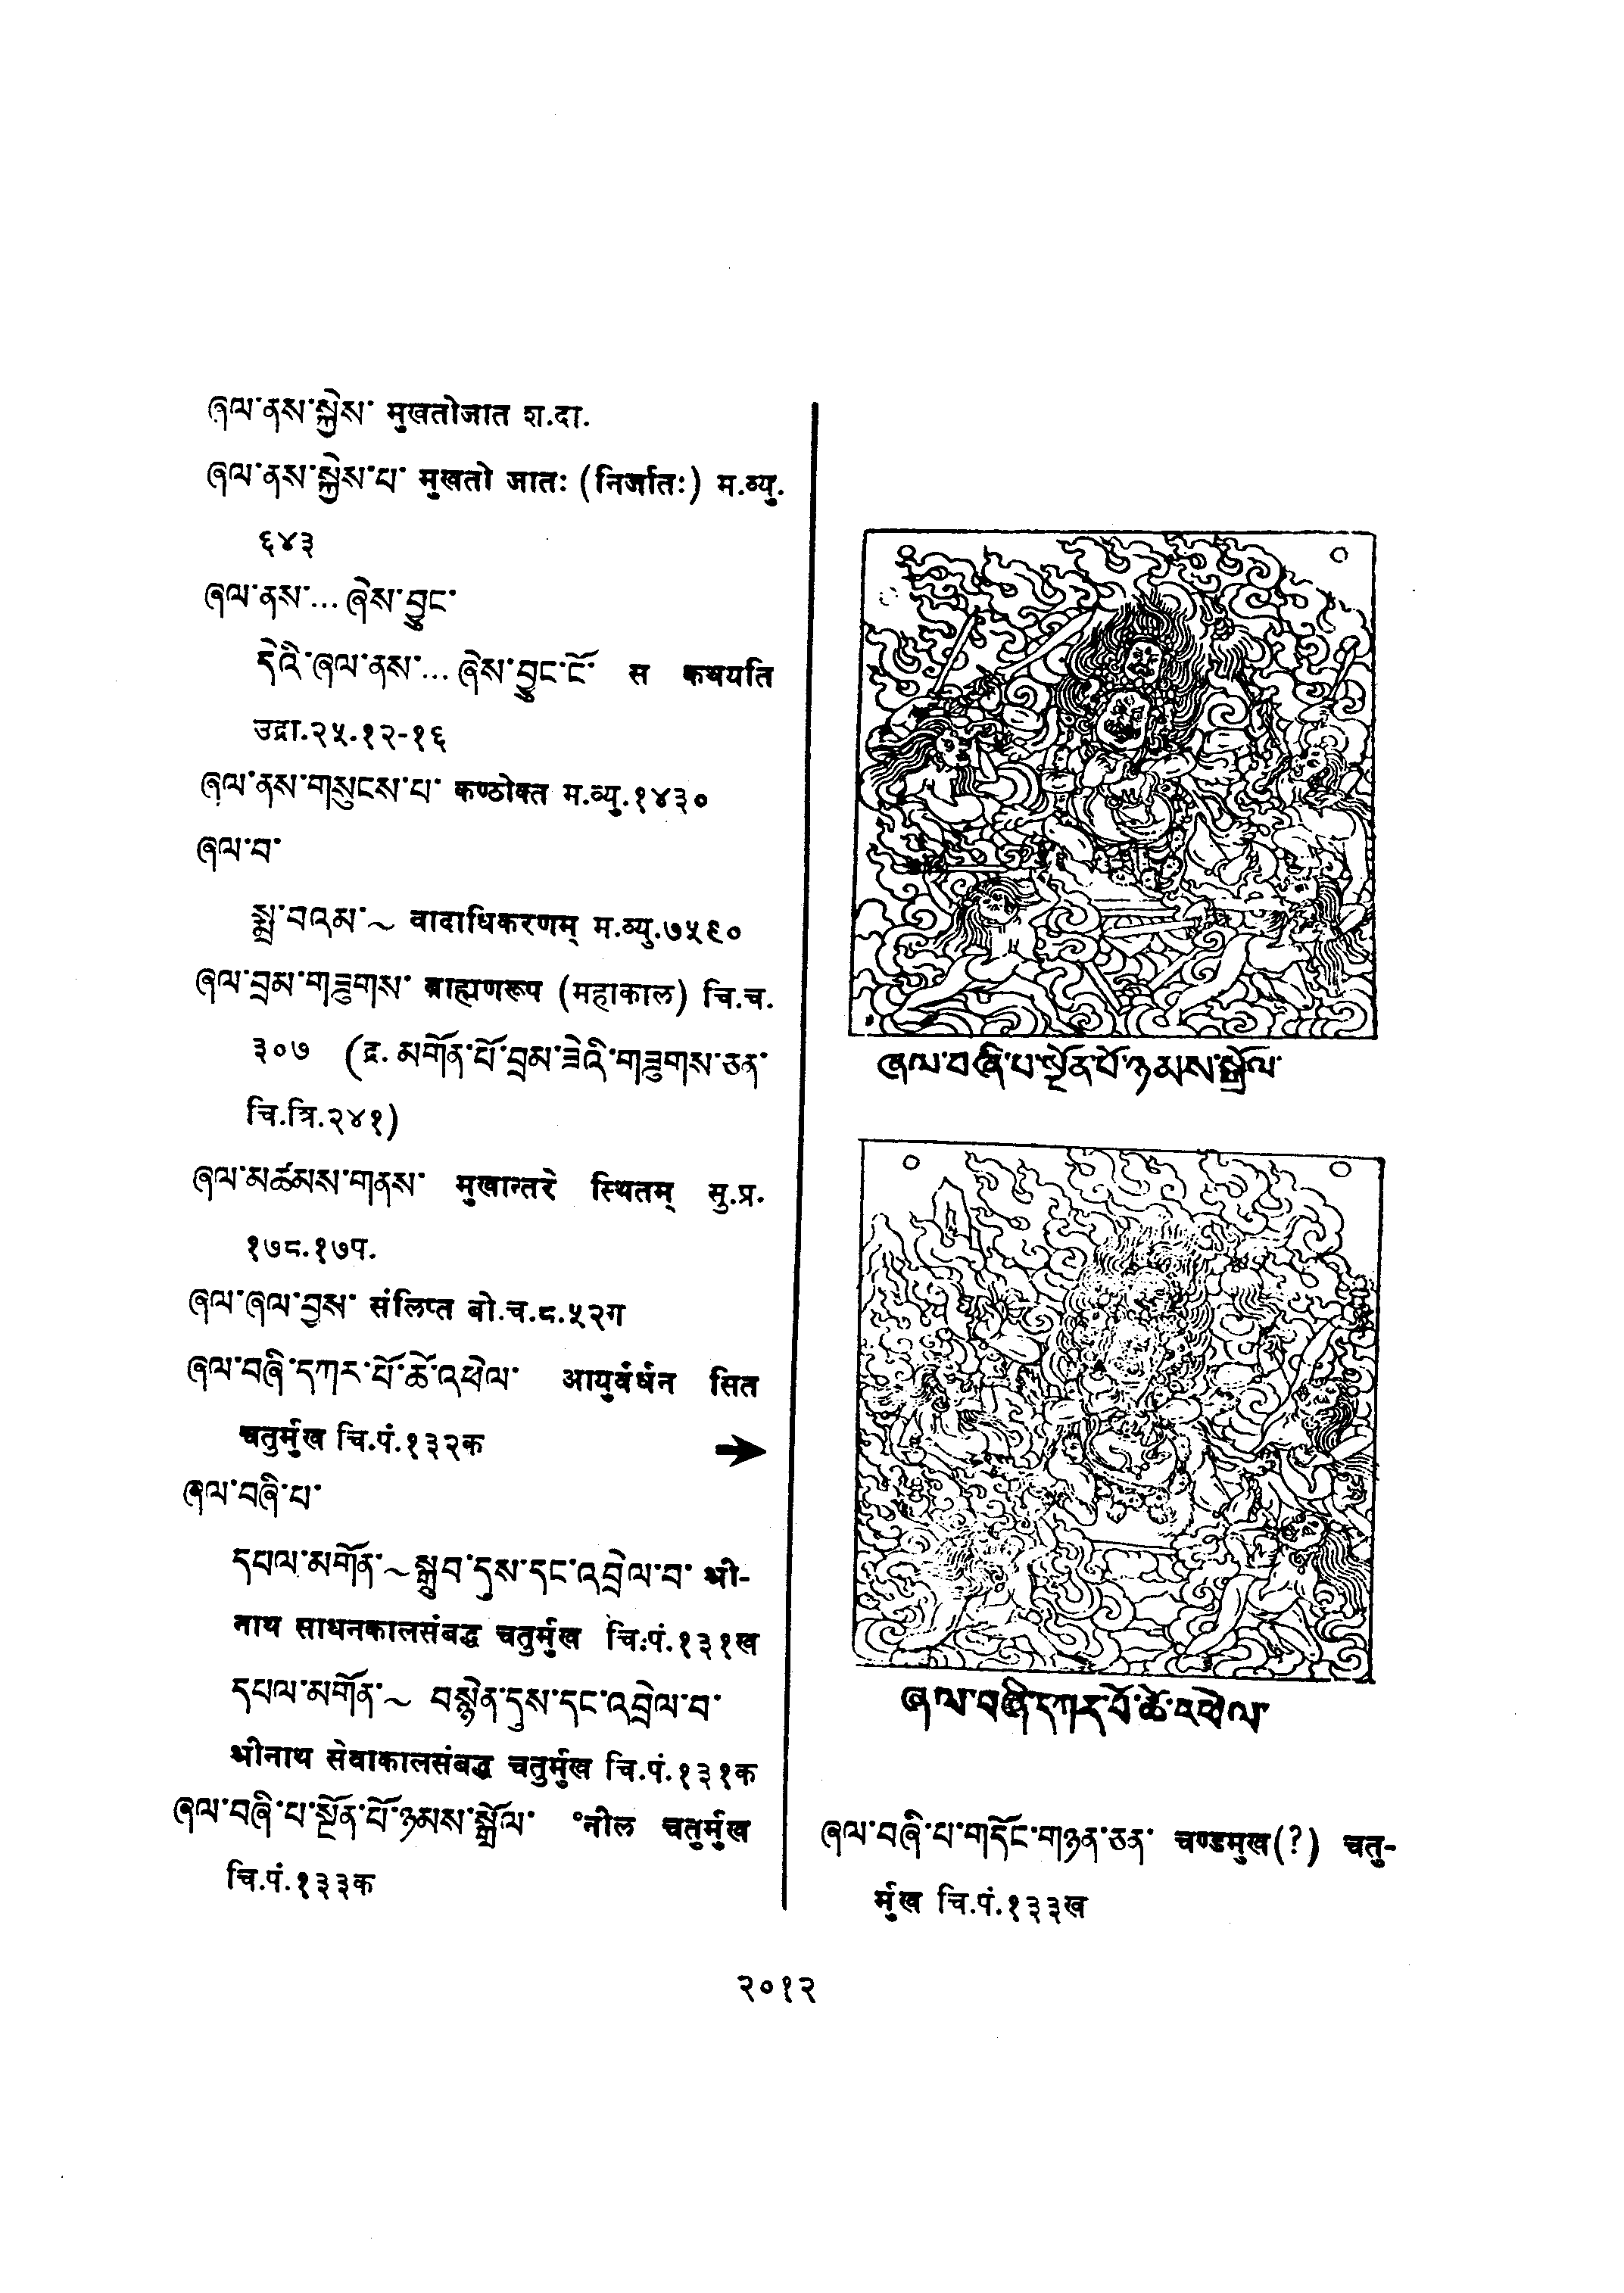 ཞལ་ནས་སྐྱེས་ मुखतोजात श.दा.
ཞལ་ནས་སྐྱེས་པ་ मुखतो जातः (निर्जातः) म.व्यु.
६४३
ཞལ་ནས་... ཞེས་བྱུང་
དེའི་ཞལ་ནས་... ཞེས་བྱུང་ངོ་ स कथयति
उद्रा.२५.१२-१६
ཞལ་ནས་གསུངས་པ་ कण्ठोक्त म.व्यु.१४३०
ཞལ་བ་
སྨྲ་བའམ་~ वादाधिकरणम् म.व्यु.७५९०
ཞལ་བྲམ་གཟུགས་ ब्राह्मणरूप (महाकाल) चि.च.
३०७ (द्र. མགོན་པོ་བྲམ་ཟེའི་གཟུགས་ཅན་
चि.त्रि.२४१)
ཞལ་མཚམས་གནས་ मुखान्तरे स्थितम् सु.प्र.
१७८.१७प.
ཞལ་ཞལ་བྱས་ संलिप्त बो.च.८.५२ग
ཞལ་བཞི་དཀར་པོ་ཚེ་འཕེལ་ आयुर्वर्धन सित
चतुर्मुख चि.पं.१३२क →
ཞལ་བཞི་པ་
དཔལ་མགོན་~སྒྲུབ་དུས་དང་འབྲེལ་བ་ श्री-
नाथ साधनकालसंबद्ध चतुर्मुख चि.पं.१३१ख
དཔལ་མགོན་~ བསྙེན་དུས་དང་འབྲེལ་བ་
श्रीनाथ सेवाकालसंबद्ध चतुर्मुख चि.पं.१३१क
ཞལ་བཞི་པ་སྔོན་པོ་ཉམས་སྒྲོལ་ °नील चतुर्मुख
चि.पं.१३३क
ཞལ་བཞི་པ་སྔོན་པོ་ཉམས་སྒྲོལ་
ཞལ་བཞི་དཀར་པོ་ཚེ་འཕེལ་
ཞལ་བཞི་པ་གདོང་གཉན་ཅན་ चण्डमुख(?) चतु-
र्मुख चि.पं.१३३ख
२०१२